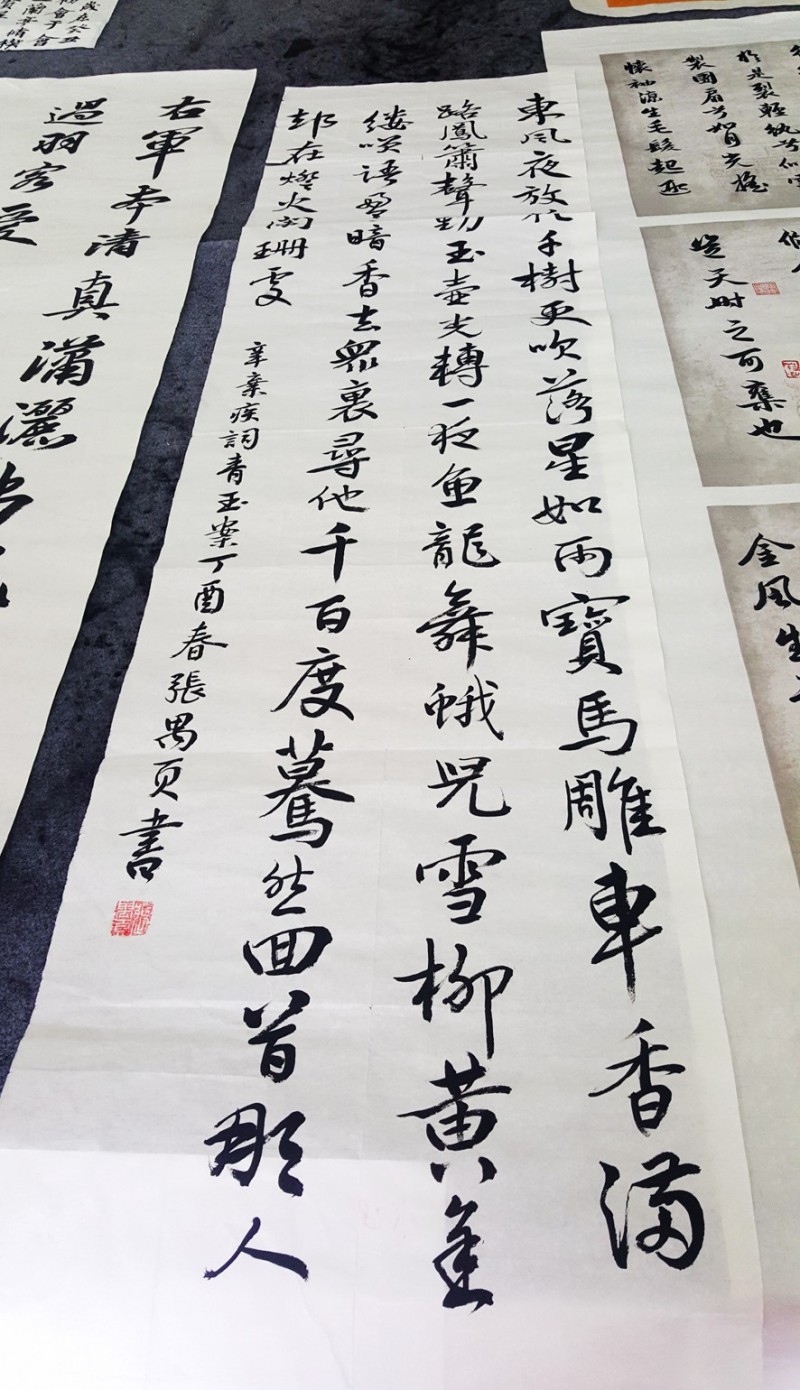 製團扇兮如月光搖
懷袖涼生毛髮起
天時之可棄也
金風生
東風夜放花千樹更吹落星如雨寶馬雕車香滿
路鳳簫聲動玉壺光轉一夜魚龍舞蛾兒雪柳黃金
縷咲語盈暗香去眾裏尋他千百度驀然回首那人
却在燈火闌珊處
辛棄疾詞青玉案丁酉春張禺頁書
右軍本清真瀟灑
過羽客
歲在癸丑
會于會
蘭亭脩禊